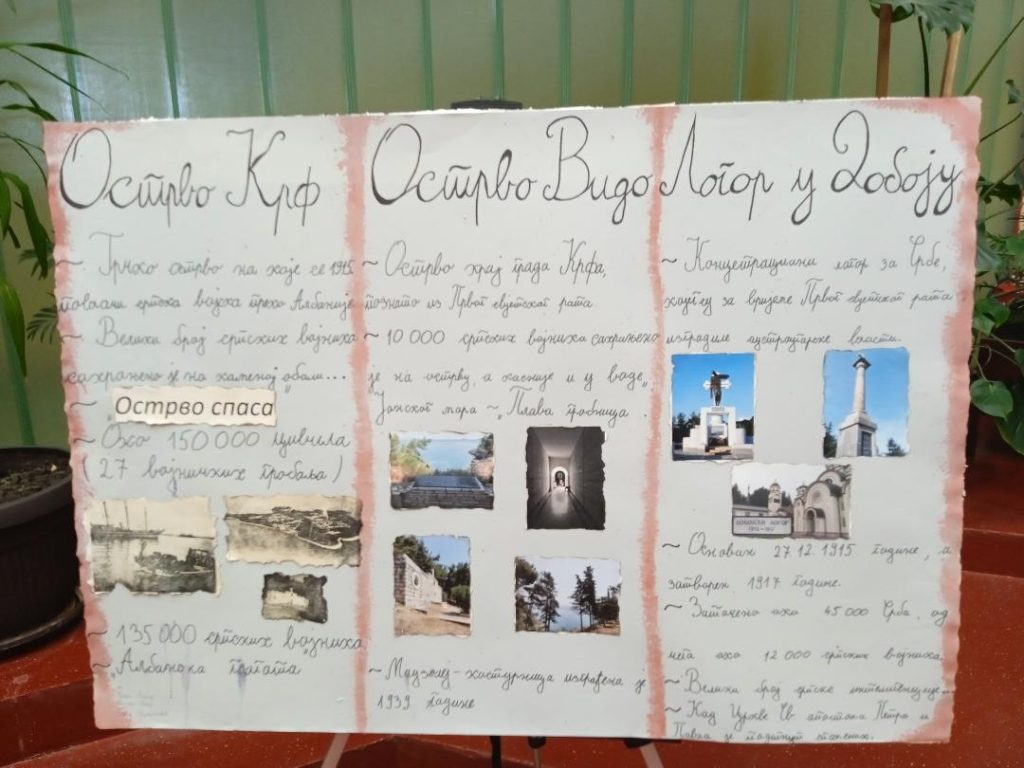 Острво Крф
~ Грчко острво на које се 1915.
повлачи српска војска преко Албаније
~ Велики број српских војника
сахрањено је на каменој обали...
~ „Острво спаса"
~ Око 150 000 цивила
(27 војничких гробља)
~ 135 000 српских војника
~ Албанска голгота
Острво Видо
~ Острво крај града Крфа,
познато из Првог свјетског рата.
~ 10 000 српских војника сахрањено
је на острву, а касније и у воде
Јонског мора ~ „Плава гробница".
~ Маузолеј - костурница изграђена је
1939 године
Логор у Добоју
~ Концетрациони логор за Србе,
који су за вријеме Првог свјетског рата
изградиле аустроугарске власти.
ДОБОЈСКИ ЛОГОР
1915-1917
~ Основан 27.12.1915. године, а
затворен 1917 године.
~ Заточено око 45 000 Срба, од
чега око 12 000 српских војника
~ Велики број српске интелигенције...
~ Код Цркве Св. апостола Петра и
Павла је подигнут споменик.